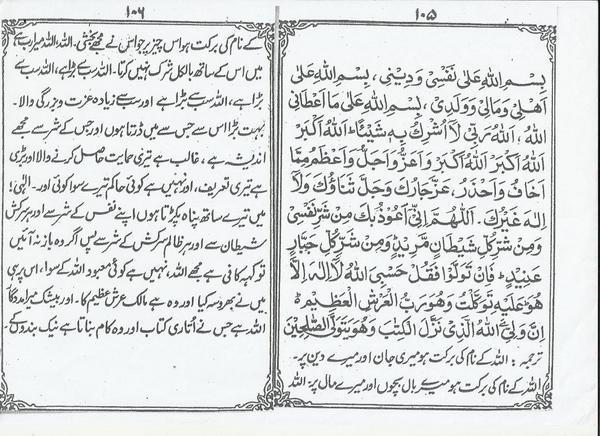 ۱۰۵
بِسْمِ اللهِ عَلٰی نَفْسِیْ وَدِیْنِیْ، بِسْمِ اللهِ عَلٰی
اَھْلِیْ وَمَالِیْ وَوَلَدِیْ، بِسْمِ اللهِ عَلٰی مَا اَعْطَانِی
اللهُ، اَللهُ رَبِّیْ لَآ اُشْرِكُ بِهٖ شَیْئًا اَللهُ اَکْبَرُ
اَللهُ اَکْبَرُ اَللهُ اَکْبَرُ وَاَعَزُّ وَاَجَلُّ وَاَعْظَمُ مِمَّا
اَخَافُ وَاَحْذَرُ، عَزَّ جَارُكَ وَجَلَّ ثَنَاؤُكَ وَلَآ
اِلٰهَ غَیْرُكَ۔ اَللّٰھُمَّ اِنِّیْ اَعُوْذُ بِكَ مِنْ شَرِّ نَفْسِیْ
وَمِنْ شَرِّ کُلِّ شَیْطَانٍ مَّرِیْدٍ وَمِنْ شَرِّ کُلِّ جَبَّارٍ
عَنِیْدٍ، فَاِنْ تَوَلَّوْا فَقُلْ حَسْبِیَ اللهُ لَآ اِلٰهَ اِلَّا
ھُوَ عَلَیْهِ تَوَکَّلْتُ وَھُوَ رَبُّ الْعَرْشِ الْعَظِیْمِ
اِنَّ وَلِیِّ یَ اللهُ الَّذِیْ نَزَّلَ الْکِتٰبَ وَھُوَ یَتَوَلَّی الصّٰلِحِیْنَ
ترجمہ: اللہ کے نام کی برکت ہو میری جان اور میرے دین پر۔
اللہ کے نام کی برکت ہو میرے بال بچوں اور میرے مال پر۔ اللہ
۱۰۶
کے نام کی برکت ہو اس چیز پر جو اس نے مجھے بخشی۔ اللہ، اللہ میرا رب ہے
میں اس کے ساتھ بالکل شرک نہیں کرتا۔ اللہ سب سے بڑا ہے، اللہ سب سے
بڑا ہے، اللہ سب سے بڑا ہے اور سب سے زیادہ عزت و بزرگی والا۔
بہت بڑا اس سے جس سے میں ڈرتا ہوں اور جس کے شر سے مجھے
اندیشہ ہے، غالب ہے تیری حمایت حاصل کرنے والا اور بڑی
ہے تیری تعریف، اور نہیں ہے کوئی حاکم تیرے سوا کوئی اور۔ الٰہی!
میں تیرے ساتھ پناہ پکڑتا ہوں اپنے نفس کے شر سے اور ہر سرکش
شیطان سے اور ہر ظالم سرکش کے شر سے پس اگر وہ باز نہ آئیں
تو کہہ کافی ہے مجھے اللہ، نہیں ہے کوئی معبود اللہ کے سوا، اس پر ہی
میں نے بھروسہ کیا اور وہ ہے مالک عرش عظیم کا۔ اور بیشک میرا مددگار
اللہ ہے جس نے اُتاری کتاب اور وہ کام بناتا ہے نیک بندوں کے